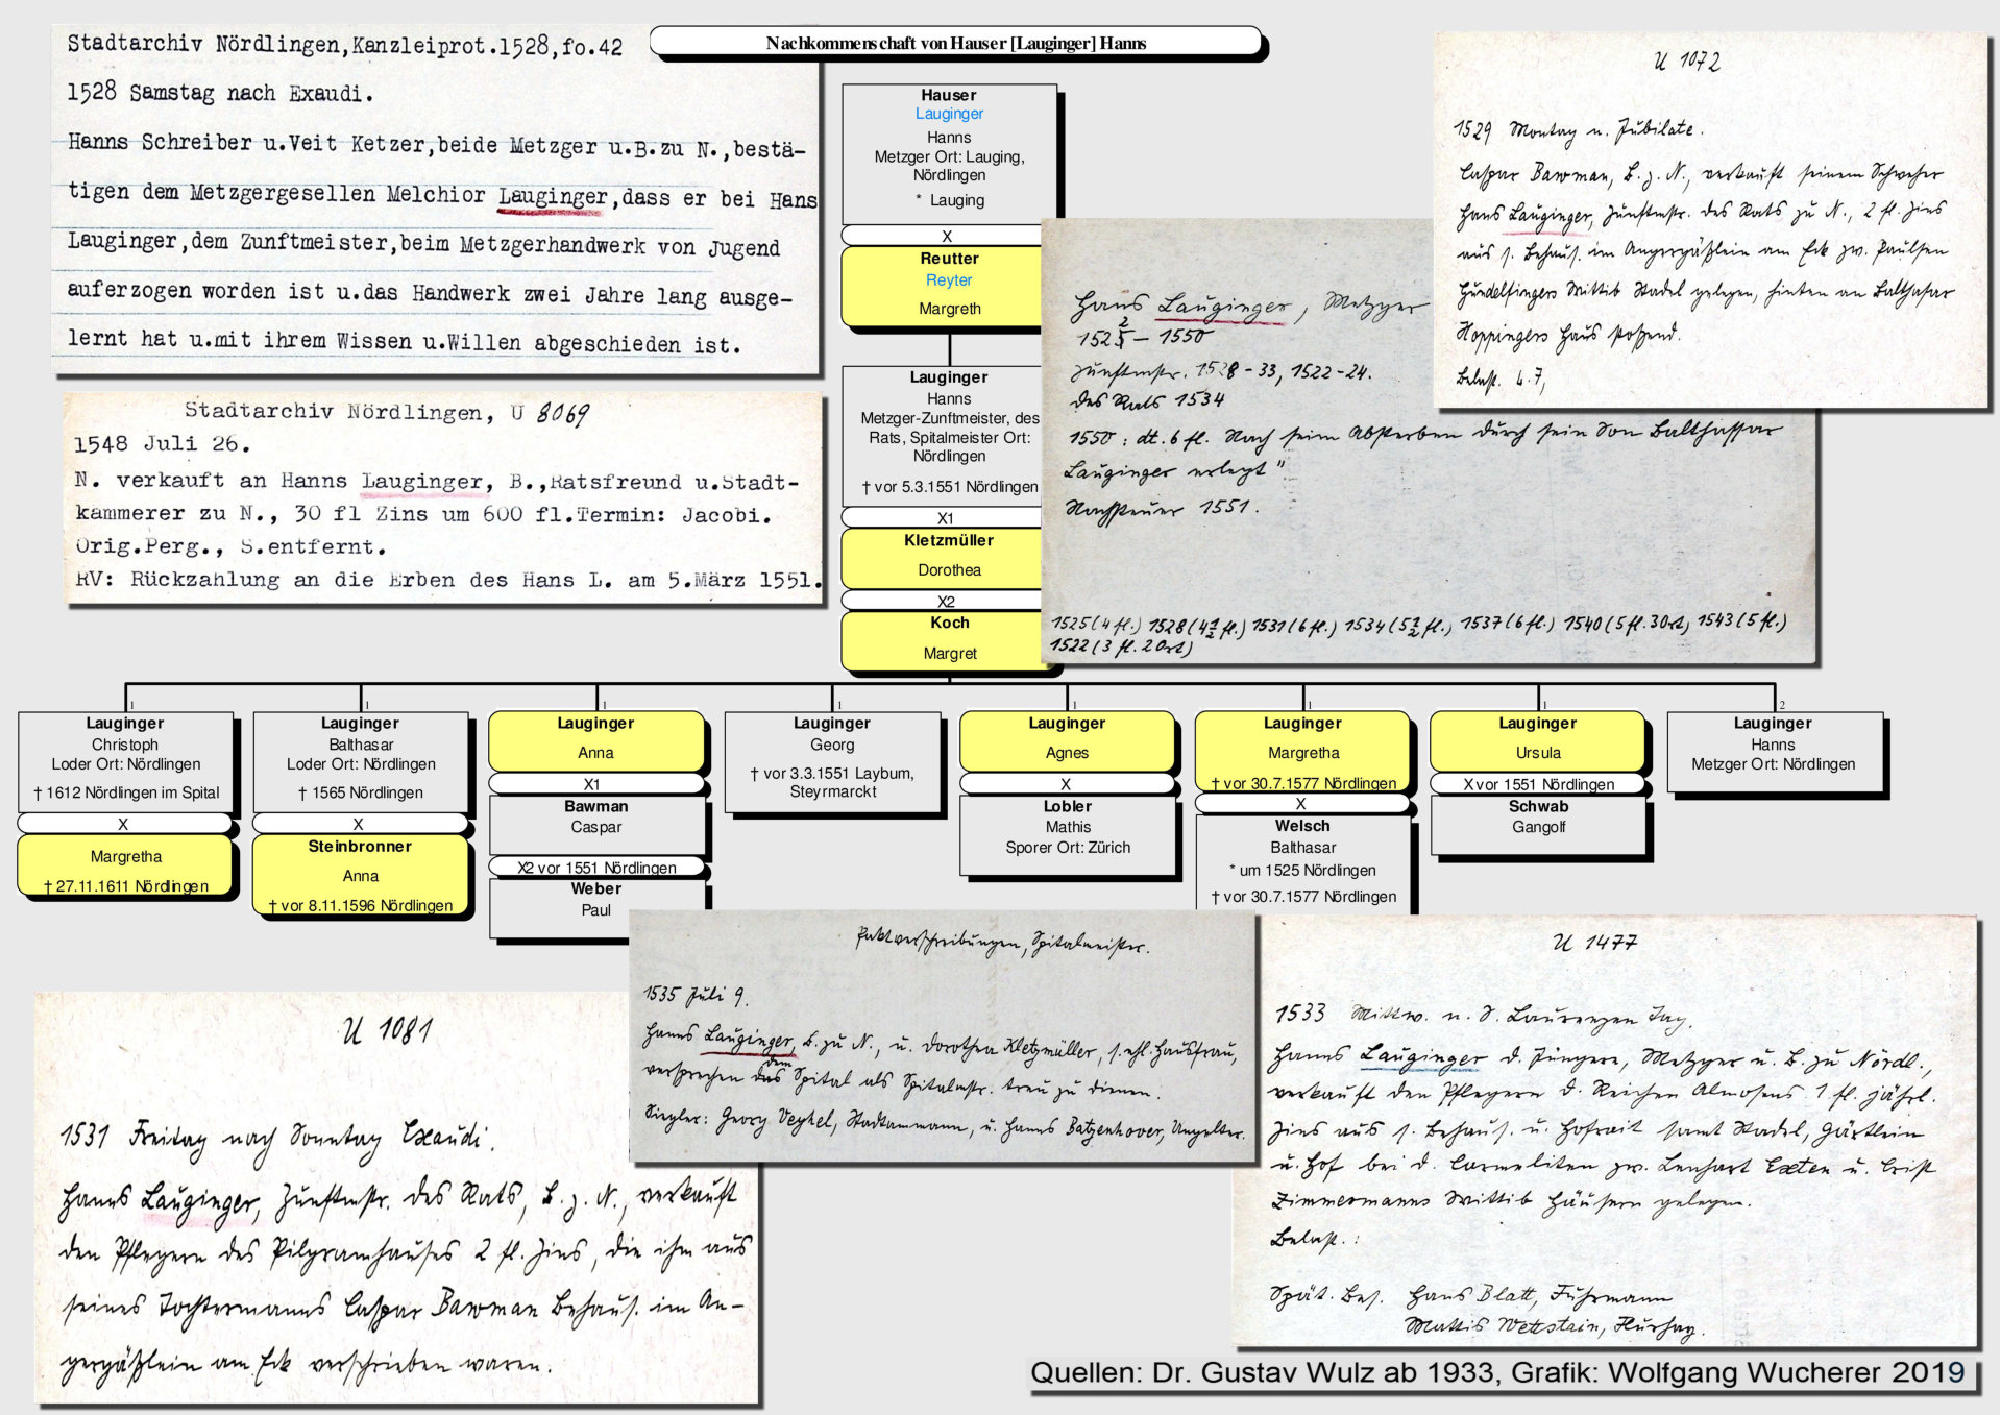 Nachkommenschaft von Hauser [Lauginger] Hanns
Stadtarchiv Nördlingen, Kanzleiprot.1528, fo.42
1528 Samstag nach Exaudi.
Hanns Schreiber u.Veit Ketzer, beide Metzger u.B.zu N., bestä-
tigen dem Metzgergesellen Melchior Lauginger, dass er bei Hans
Lauginger, dem Zunftmeister, beim Metzgerhandwerk von Jugend
auferzogen worden ist u.das Handwerk zwei Jahre lang ausge-
lernt hat u.mit ihrem Wissen u.Willen abgeschieden ist.
Stadtarchiv Nördlingen, U 8069
1548 Juli 26.
N. verkauft an Hanns Lauginger, B., Ratsfreund u.Stadt-
kammerer zu N., 30 fl Zins um 600 fl.Termin: Jacobi.
Orig.Perg., S.entfernt.
RV: Rückzahlung an die Erben des Hans L. am 5.März 1551.
Hauser
Lauginger
Hanns
Metzger Ort: Lauging,
Nördlingen
* Lauging
X
Reutter
Reyter
Margreth
Lauginger
Hanns
Metzger-Zunftmeister, des
Rats, Spitalmeister Ort:
Nördlingen
† vor 5.3.1551 Nördlingen
X1
Kletzmüller
Dorothea
X2
Koch
Margret
U 1072
1529 Montag n. Jubilate.
Caspar Bawman, B. z. N., verkauft seinem Schweher
Hans Lauginger, Zunftmstr. des Rats zu N., 2 fl. Zins
aus s. Behaus. im Angergäßlein am Eck zw. Paulsen
Hundelfingers Wittib Stadel gelegen, hinten an Balthasar
Hoppinglers Haus stoßend.
Belast. 4.7,
Hans Lauginger, Metzger
1525 2 – 1550
Zunftmstr. 1528 - 33, 1522-24.
des Rats 1534
1550: dt. 6 fl. Nach seim Absterben durch sein Son Balthassar
Lauginger erlegt"
Nachsteuer 1551.
1525 (4 fl.) 1528 (4½ fl.) 1531 (6 fl.) 1534 (5½ fl.), 1537 (6 fl.) 1540 (5 fl. 3 Ort) 1543 (5 fl.)
1522 (3 fl. 2 Ort)
1
Lauginger
Christoph
Loder Ort: Nördlingen
† 1612 Nördlingen im Spital
X
Margretha
† 27.11.1611 Nördlingen
1
Lauginger
Balthasar
Loder Ort: Nördlingen
† 1565 Nördlingen
X
Steinbronner
Anna
† vor 8.11.1596 Nördlingen
1
Lauginger
Anna
X1
Bawman
Caspar
X2 vor 1551 Nördlingen
Weber
Paul
1
Lauginger
Georg
† vor 3.3.1551 Laybum,
Steyrmarckt
1
Lauginger
Agnes
X
Lobler
Mathis
Sporer Ort: Zürich
1
Lauginger
Margretha
† vor 30.7.1577 Nördlingen
X
Welsch
Balthasar
* um 1525 Nördlingen
† vor 30.7.1577 Nördlingen
1
Lauginger
Ursula
X vor 1551 Nördlingen
Schwab
Gangolf
2
Lauginger
Hanns
Metzger Ort: Nördlingen
Paktverschreibungen, Spitalmeister.
1535 Juli 9.
Hanns Lauginger, B. zu N., u. Dorothea Kletzmüller, s. ehl. Hausfrau,
versprechen das dem Spital als Spitalmstr. treu zu dienen.
Siegler: Georg Veyhel, Stadtammann, u. Hanns Batzenhover, Ungelter.
U 1081
1531 Freitag nach Sonntag Exaudi.
Hanns Lauginger, Zunftmstr. des Rats, B. z. N., verkauft
den Pflegern des Pilgramhauses 2 fl. Zins, die ihm aus
seines Tochtermanns Caspar Bawman Behaus. im An-
gergäßlein am Eck verschrieben waren.
U 1477
1533 Mittw. n. S. Laurenzen Tag.
Hanns Lauginger d. Jüngere, Metzger u. B. zu Nördl.,
verkauft den Pflegern d. Reichen Almosens 1 fl. jährl.
Zins aus s. Behaus. u. Hofrait samt Stadel, Gärtlein
u. Hof bei d. Carmeliten zw. Lenhart Exten u. Crist
Zimmermanns Wittib Häusern gelegen.
Belast.:
Spät. Bes. Hans Blatt, Fuhrmann
Mattis Wetstain, Flurhay.
Quellen: Dr. Gustav Wulz ab 1933, Grafik: Wolfgang Wucherer 2019